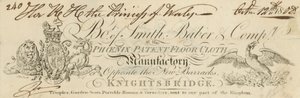 240 For H R H the Princess of Wales Octr. 12th 1808
Bt. of Smith, Baber & Comp.y
PHOENIX PATENT FLOOR CLOTH
Manufactory
Opposite the New Barracks
KNIGHTSBRIDGE.
Temples, Garden Seats, Portable Rooms & Verandas, sent to any part of the Kingdom.